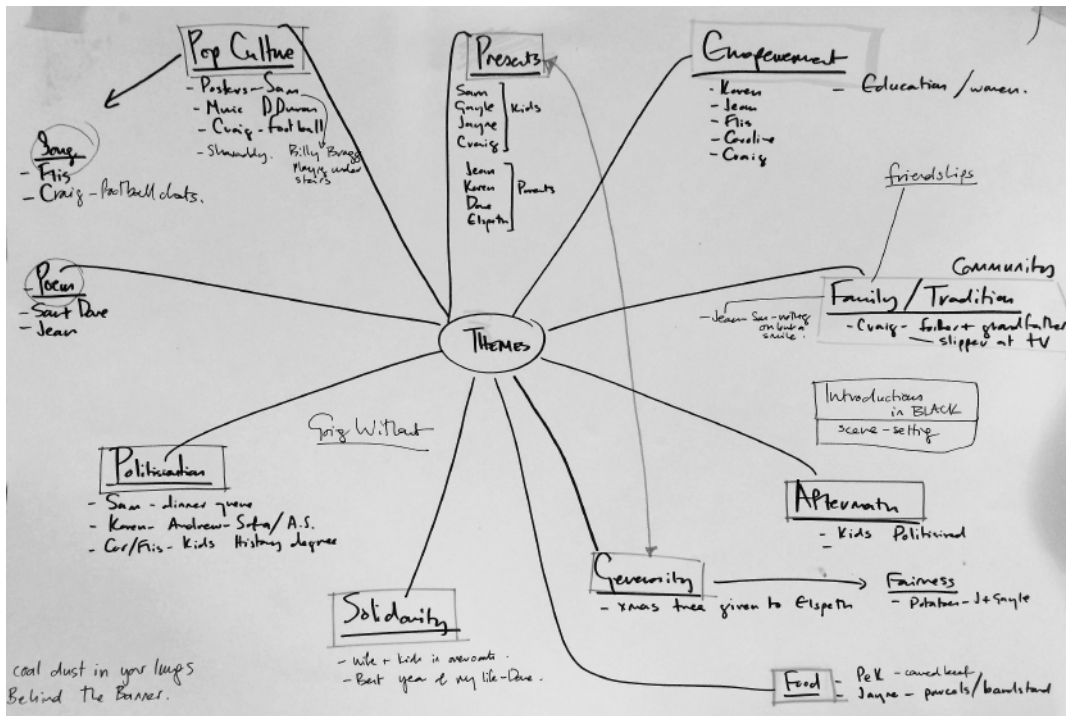 Pop Culture
- Posters - Sam
- Music D Duran
- Craig - football
- Shambly. Billy Bragg
Playing under
stairs
Song
- Flis
- Craig - football chats.
Presents
Sam
Gayle
Jayne
Craig
Kids
Jean
Karen
Dave
Elspeth
Parents
Empowerment
- Karen
- Jean
- Flis
- Caroline
- Craig
- Education / women.
friendships
Community
Family / Tradition
- Craig - father + grandfather
- slipper at TV
- Jean Sam - voting
smile.
Poem
- Dave
- Jean
THEMES
Going Without
Introductions
in BLACK
scene - setting
Politicisation
- Sam - dinner queue
- Karen - Andrew - Sofra / A.S.
- Car/Flis - Kids History degree
Aftermath
- Kids Politisised
-
Generosity
- xmas tree given to Elspeth
Fairness
- Potatoes - J + Gayle
Solidarity
- wife + kids in
- Best year of my life - Dave.
Food
- Pek - canned beef
- Jayne - parcels / bandstand
coal dust in your lungs
Behind The Banner.